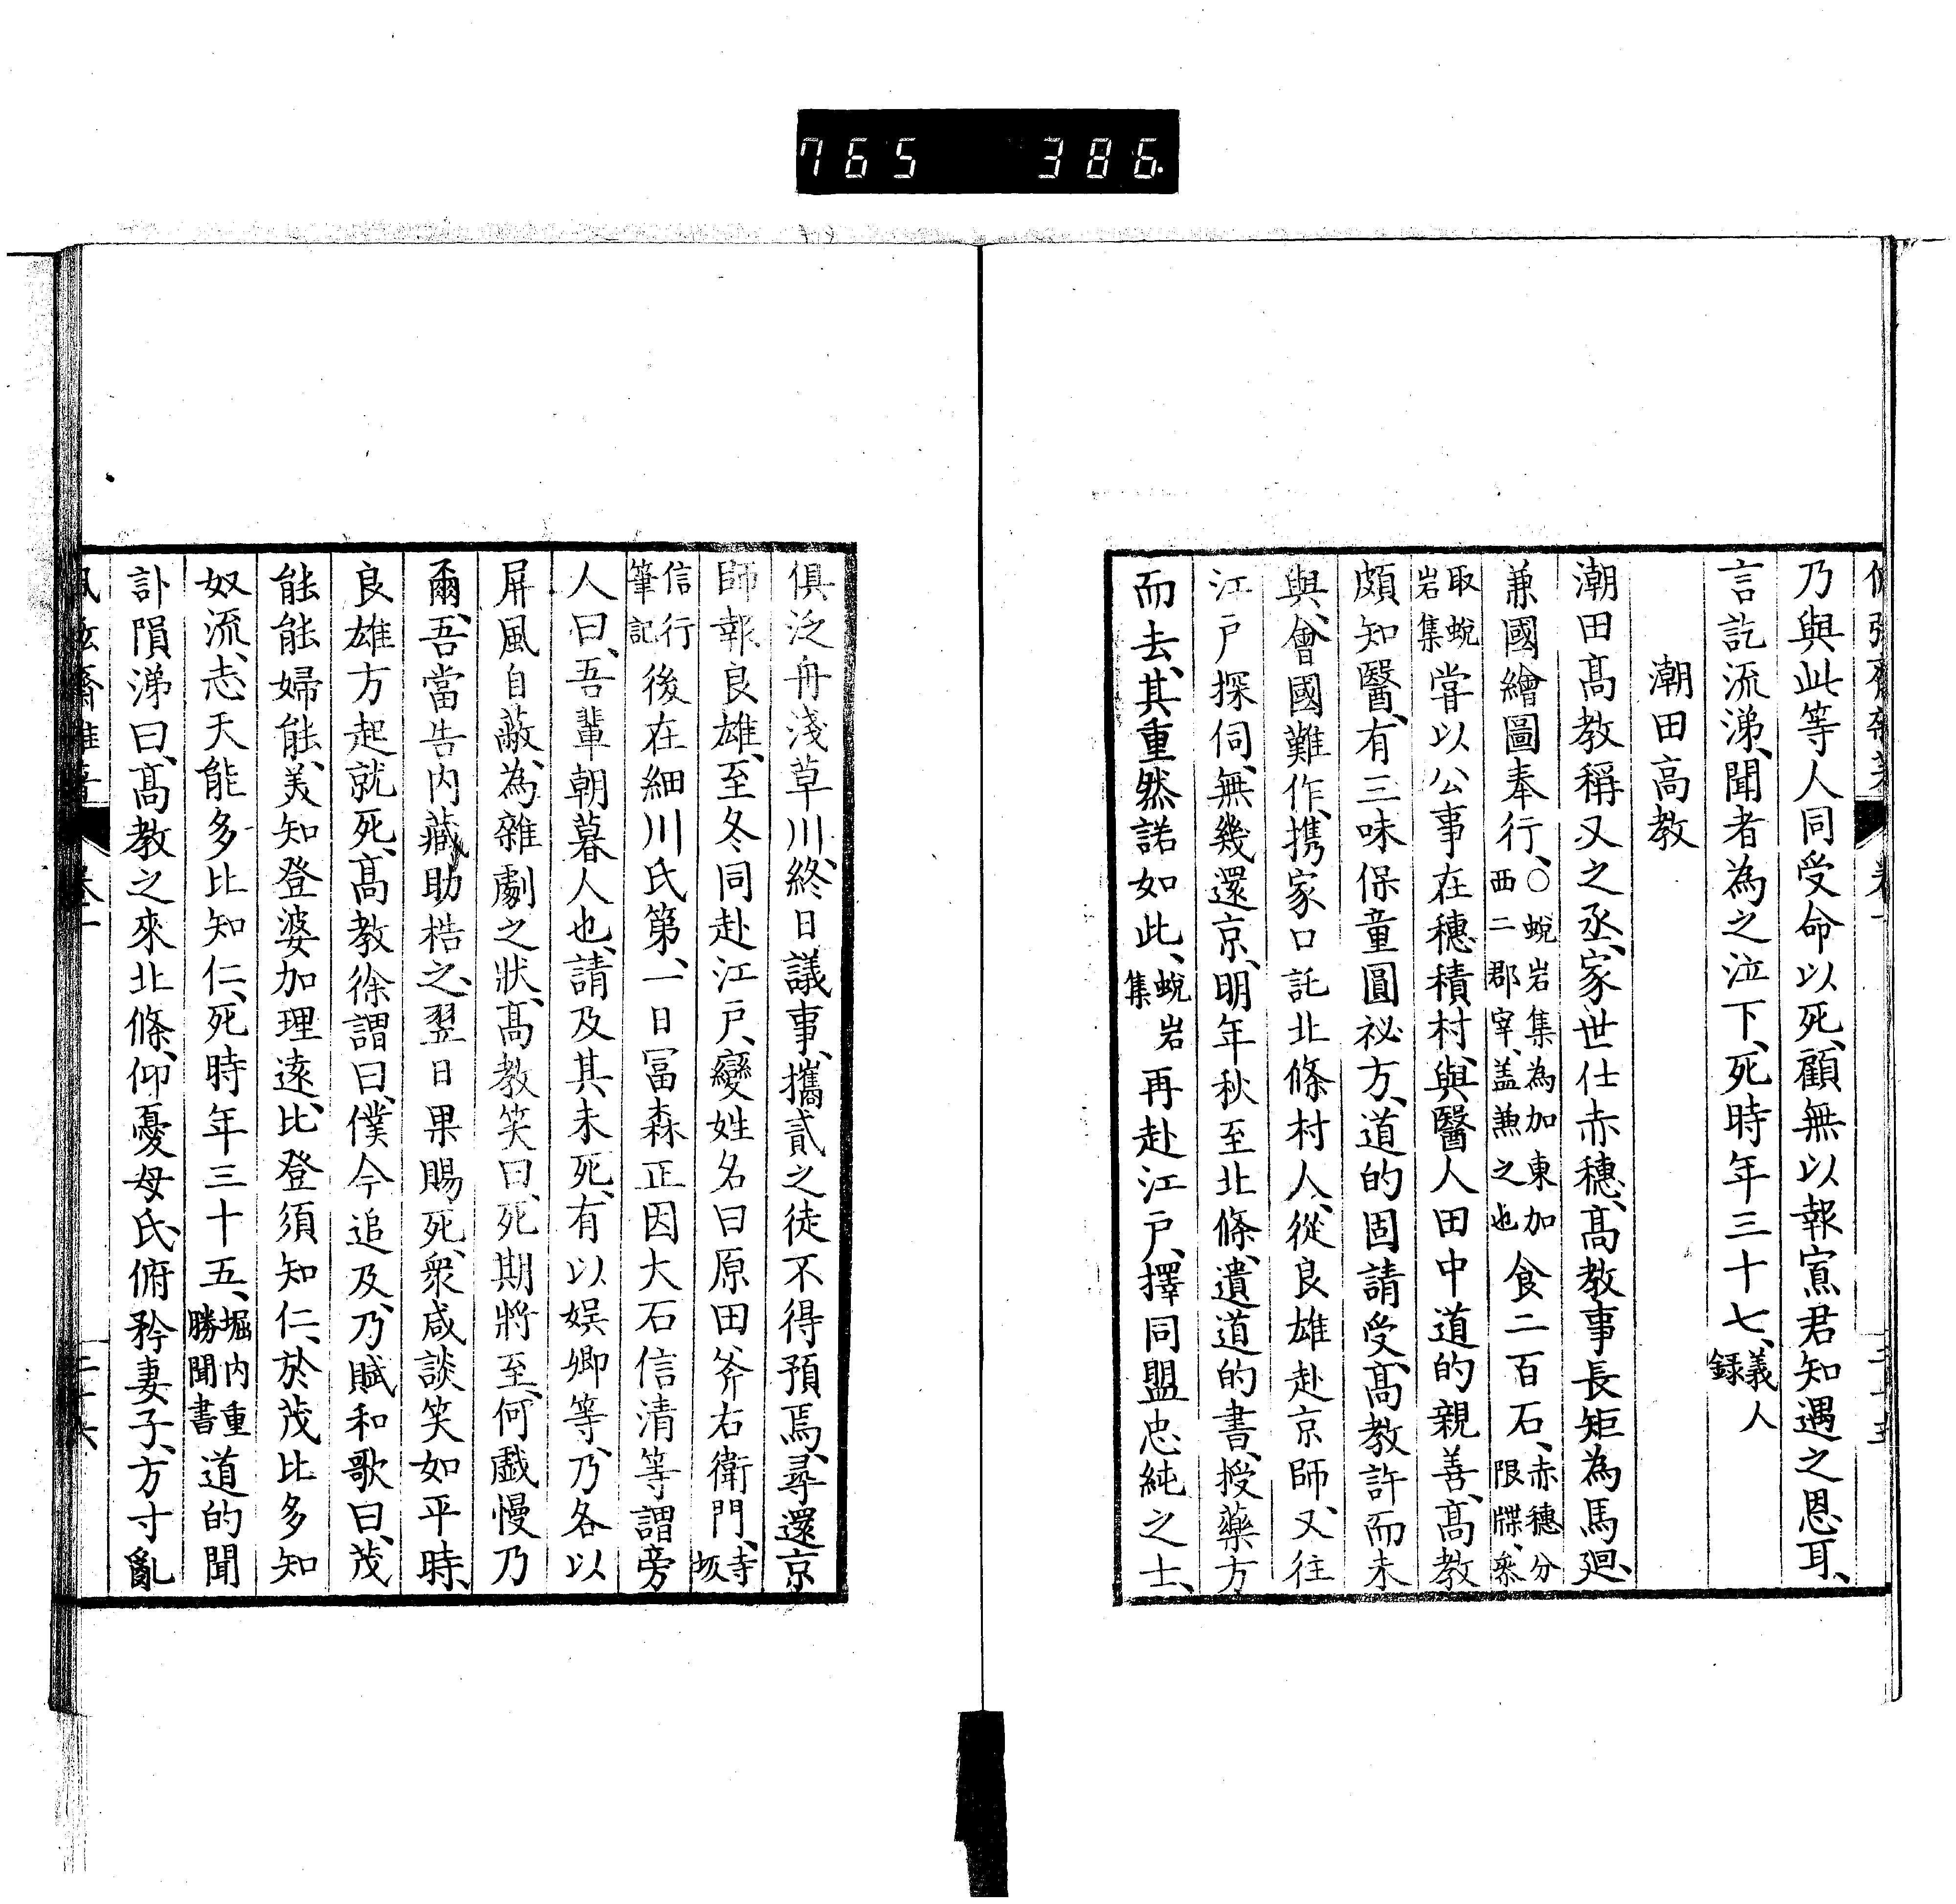 765 386.
乃與此等人同受命以死、顧無以報寃君知遇之恩耳、
言訖流涕、聞者為之泣下、死時年三十七、義人錄
潮田高教
潮田髙教稱又之丞、家世仕赤穗、髙教事長矩為馬廻、
兼國繪圖奉行、○蛻岩集為加東加西二郡宰、盖兼之也食二百石、赤穗分限牒、叅
取蛻岩集嘗以公事在穗積村、與醫人田中道的親善、髙教
頗知醫、有三味保童圓祕方、道的固請受、髙教許而未
與、會國難作、携家口託北條村人、從良雄赴京師、又往
江戸探伺、無幾還京、明年秋至北條、遺道的書、授藥方
而去、其重然諾如此、蛻岩集再赴江戸、擇同盟忠純之士、
俱泛舟淺草川、終日議事、攜貳之徒不得預焉、尋還京
師報良雄、至冬同赴江戸、變姓名曰原田斧右衛門、寺坂
信行筆記後在細川氏第、一日冨森正因大石信清等謂旁
人曰、吾輩朝暮人也、請及其未死、有以娯卿等、乃各以
屏風自蔽、為雜劇之狀、髙教笑曰、死期將至、何戯慢乃
爾、吾當告内藏助梏之、翌日果賜死、衆咸談笑如平時、
良雄方起就死、髙教徐謂曰、僕今追及、乃賦和歌曰、茂
能能婦能、美知登婆加理遠、比登須知仁、於茂比多知
奴流、志天能多比知仁、死時年三十五、堀内重勝聞書道的聞
訃隕涕曰、髙教之來北條、仰憂母氏、俯矜妻子、方寸亂